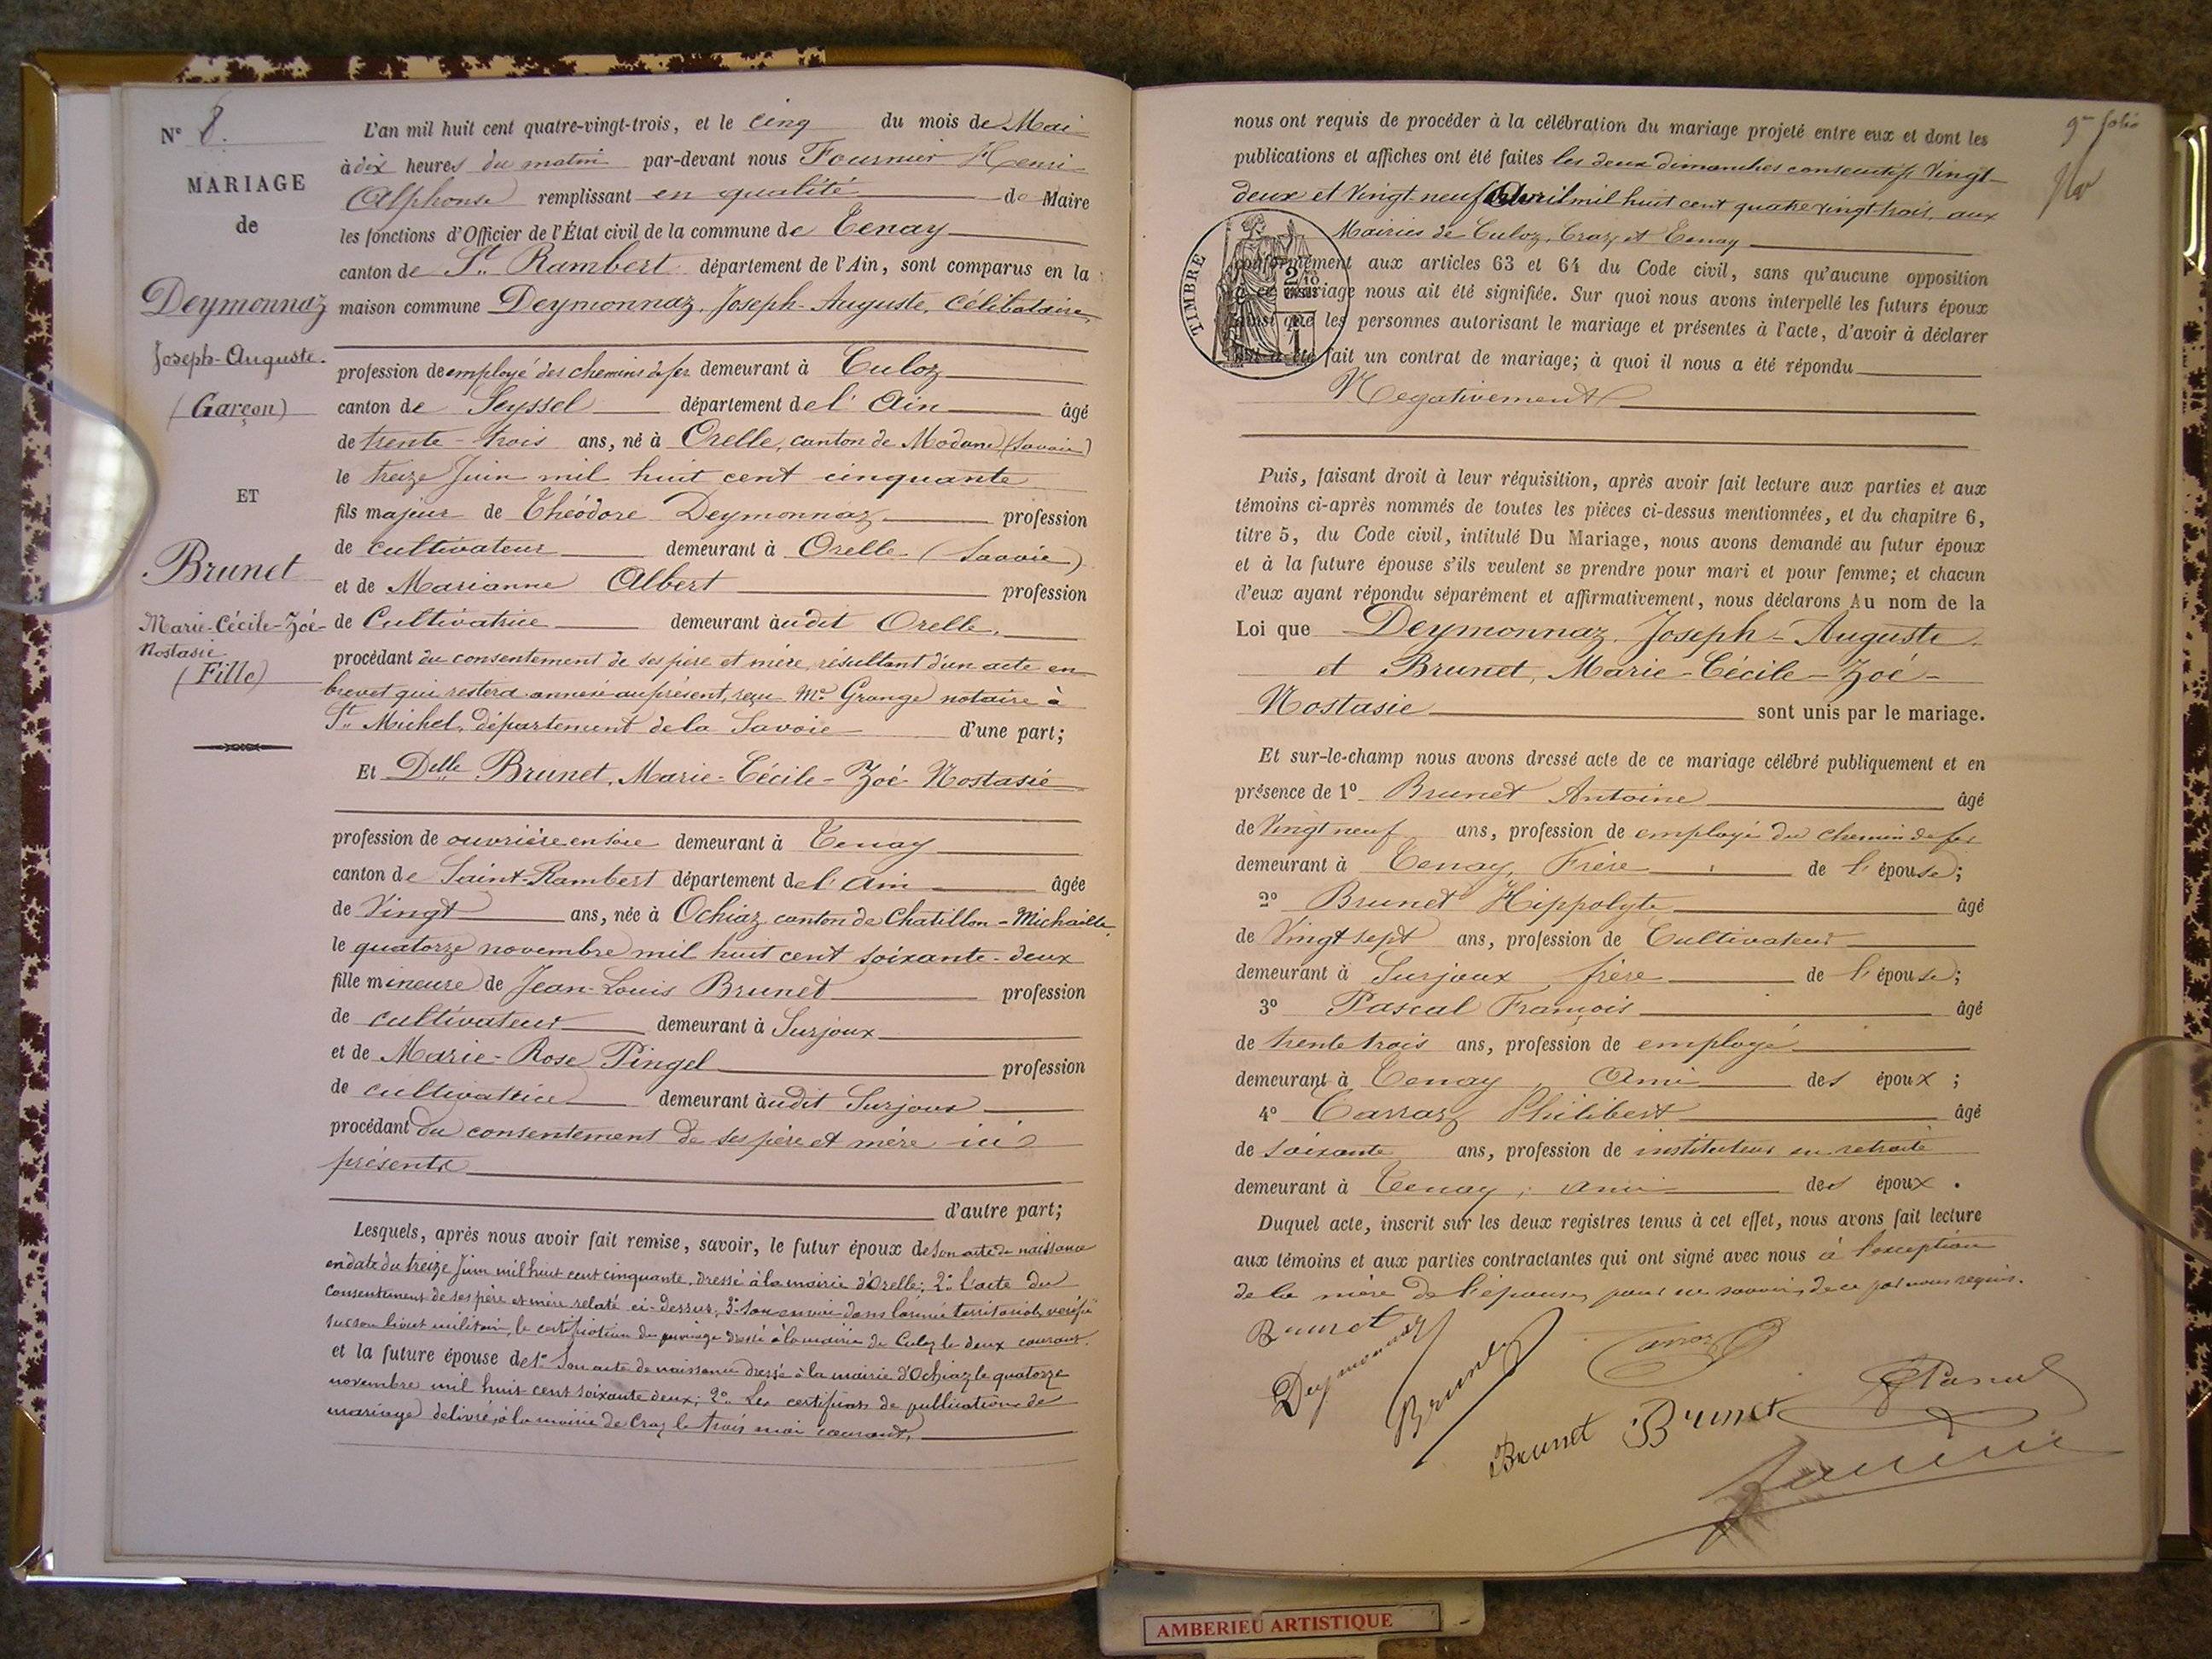 N° 8.
MARIAGE
de
Deymonnaz
Joseph-Auguste.
(Garçon)
ET
Brunet
Marie-Cécile-Zoé-
Nostasie
(Fille)
L'an mil huit cent quatre-vingt-trois, et le cinq du mois de Mai
à dix heures du matin par-devant nous Fournier Henri
Alphonse remplissant en qualité de Maire
les fonctions d'Officier de l'État civil de la commune de Tenay
canton de St. Rambert département de l'Ain, sont comparus en la
maison commune Deymonnaz, Joseph-Auguste, Célibataire,
profession de employé des chemins de fer demeurant à Culoz
canton de Seyssel département de l'Ain âgé
de trente-trois ans, né à Orelle, canton de Modane (Savoie)
le treize Juin mil huit cent cinquante
fils majeur de Théodore Deymonnaz profession
de cultivateur demeurant à Orelle (Savoie)
et de Marianne Albert profession
de Cultivatrice demeurant audit Orelle,
procédant du consentement de ses père et mère, résultant d'un acte en
brevet qui restera annexé au présent, reçu Me Grange notaire à
St. Michel, département de la Savoie d'une part;
Et Delle Brunet, Marie-Cécile-Zoé Nostasie
profession de ouvrière en soie demeurant à Tenay
canton de Saint-Rambert département de l'Ain âgée
de Vingt ans, née à Ochiaz canton de Chatillon-Michaille
le quatorze novembre mil huit cent soixante-deux
fille mineure de Jean-Louis Brunet profession
de cultivateur demeurant à Surjoux
et de Marie-Rose Pingel profession
de cultivatrice demeurant audit Surjoux
procédant du consentement de ses père et mère ici
présents
d'autre part;
Lesquels, après nous avoir fait remise, savoir, le futur époux de son acte de naissance
en date du treize Juin mil huit cent cinquante, dressé à la mairie d'Orelle; 2° l'acte du
consentement de ses père et mère relaté ci-dessus, 3° son envoi dans l'armée territoriale vérifié
sur son livret militaire, le certification du mariage dressé à la mairie de Culoz le deux courant.
et la future épouse de 1° Son acte de naissance dressé à la mairie d'Ochiaz le quatorze
novembre mil huit cent soixante deux; 2° Les certificats de publications de
mariage délivré, à la mairie de Craz le trois mai courant,
9me folio
nous ont requis de procéder à la célébration du mariage projeté entre eux et dont les
publications et affiches ont été faites les deux dimanches consécutifs Vingt-
deux et Vingt neuf Avril mil huit cent quatre vingt trois, aux
Mairies de Culoz, Craz et Tenay
TIMBRE
conformément aux articles 63 et 64 du Code civil, sans qu'aucune opposition
à ce mariage nous ait été signifiée. Sur quoi nous avons interpellé les futurs époux
ainsi que les personnes autorisant le mariage et présentes à l'acte, d'avoir à déclarer
s'il a été fait un contrat de mariage; à quoi il nous a été répondu
Négativement
Puis, faisant droit à leur réquisition, après avoir fait lecture aux parties et aux
témoins ci-après nommés de toutes les pièces ci-dessus mentionnées, et du chapitre 6,
titre 5, du Code civil, intitulé Du Mariage, nous avons demandé au futur époux
et à la future épouse s'ils veulent se prendre pour mari et pour femme; et chacun
d'eux ayant répondu séparément et affirmativement, nous déclarons Au nom de la
Loi que Deymonnaz, Joseph-Auguste.
et Brunet, Marie-Cécile-Zoé-
Nostasie sont unis par le mariage.
Et sur-le-champ nous avons dressé acte de ce mariage célébré publiquement et en
présence de 1° Brunet Antoine âgé
de Vingt neuf ans, profession de employé du chemin de fer
demeurant à Tenay, Frère de l'épouse;
2° Brunet Hippolyte âgé
de Vingt sept ans, profession de Cultivateur
demeurant à Surjoux frère de l'épouse;
3° Pascal François âgé
de trente trois ans, profession de employé
demeurant à Tenay, Ami des époux;
4° Carraz Philibert âgé
de soixante ans, profession de instituteur en retraite
demeurant à Tenay; ami des époux.
Duquel acte, inscrit sur les deux registres tenus à cet effet, nous avons fait lecture
aux témoins et aux parties contractantes qui ont signé avec nous à l'exception
de la mère de l'épouse, pour ne savoir, de ce par nous requis.
Brunet
Deymonnaz
Brunet
Carraz
Brunet Brunet
Pascal
AMBERIEU ARTISTIQUE